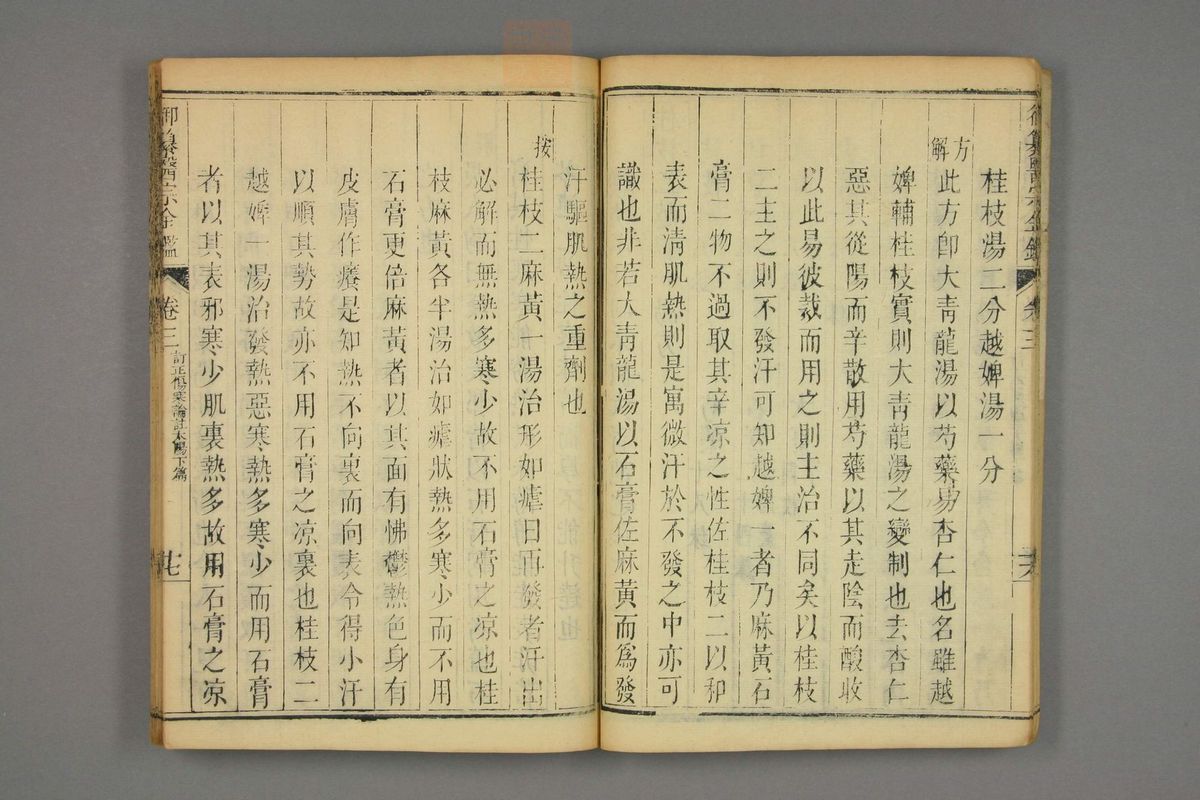 御纂醫宗金鑑
卷三
桂枝湯二分越婢湯一分
方解
此方卽大青龍湯以芍藥易杏仁也名雖越
婢輔桂枝實則大青龍湯之變制也去杏仁
惡其從陽而辛散用芍藥以其走陰而酸收
以此易彼裁而用之則主治不同矣以桂枝
二主之則不發汗可知越婢一者乃麻黃石
膏二物不過取其辛凉之性佐桂枝二以和
表而淸肌熱則是寓微汗於不發之中亦可
識也非若大靑龍湯以石膏佐麻黃而爲發
汗驅肌熱之重劑也
按
桂枝二麻黃一湯治形如瘧日再發者汗出
必解而無熱多寒少故不用石膏之凉也桂
枝麻黃各半湯治如瘧狀熱多寒少而不用
石膏更倍麻黃者以其面有怫鬱熱色身有
皮膚作癢是知熱不向裏而向表令得小汗
以順其勢故亦不用石膏之凉裏也桂枝二
越婢一湯治發熱惡寒熱多寒少而用石膏
者以其表邪寒少肌裏熱多故用石膏之凉
御纂醫宗金鑑
卷三
訂正傷寒論註太陽下篇
七